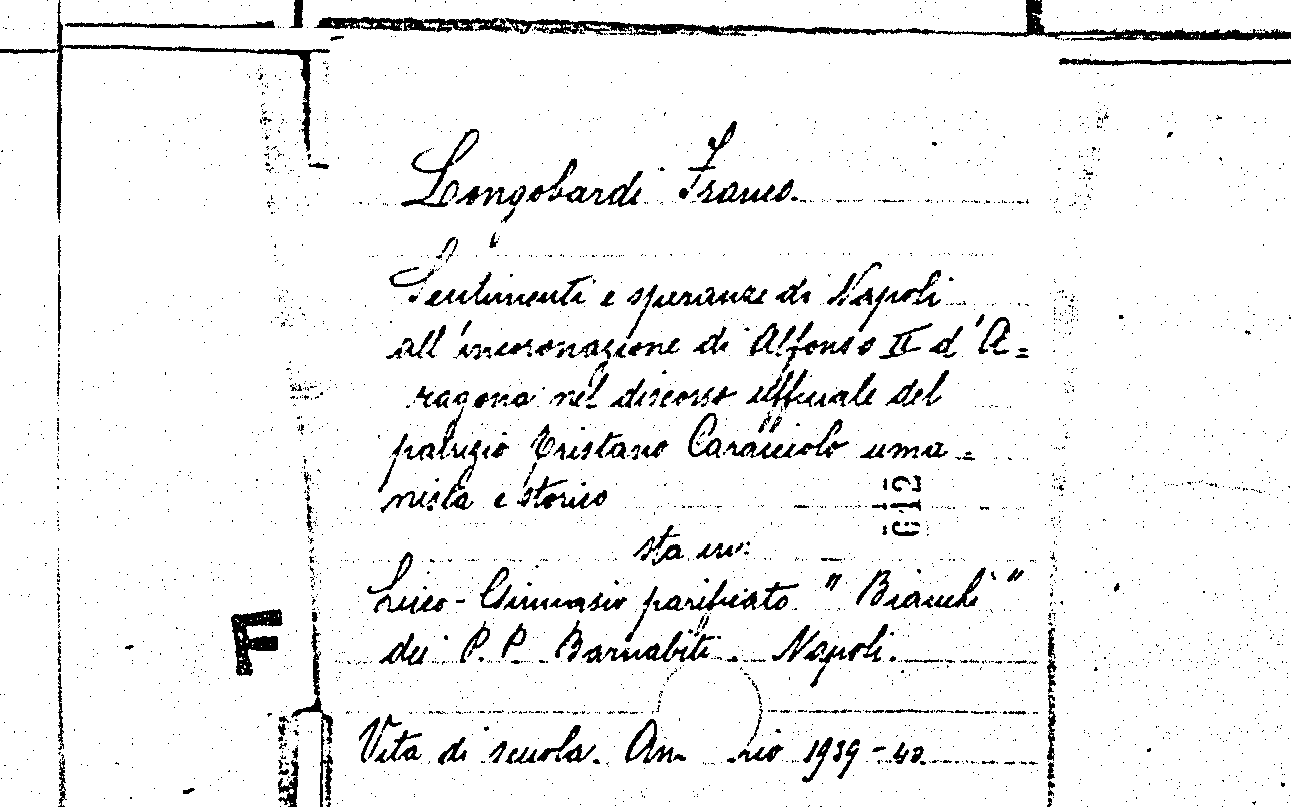 Longobardi Franco.
Sentimenti e speranze di Napoli
all'incoronazione di Alfonso II d'A=
ragona nel discorso ufficiale del
patrizio Tristano Caracciolo uma=
nista e storico
612
sta in:
Liceo-Ginnasio parificato "Bianchi"
dei P.P. Barnabiti. Napoli.
F
Vita di scuola. An rio 1939-40.